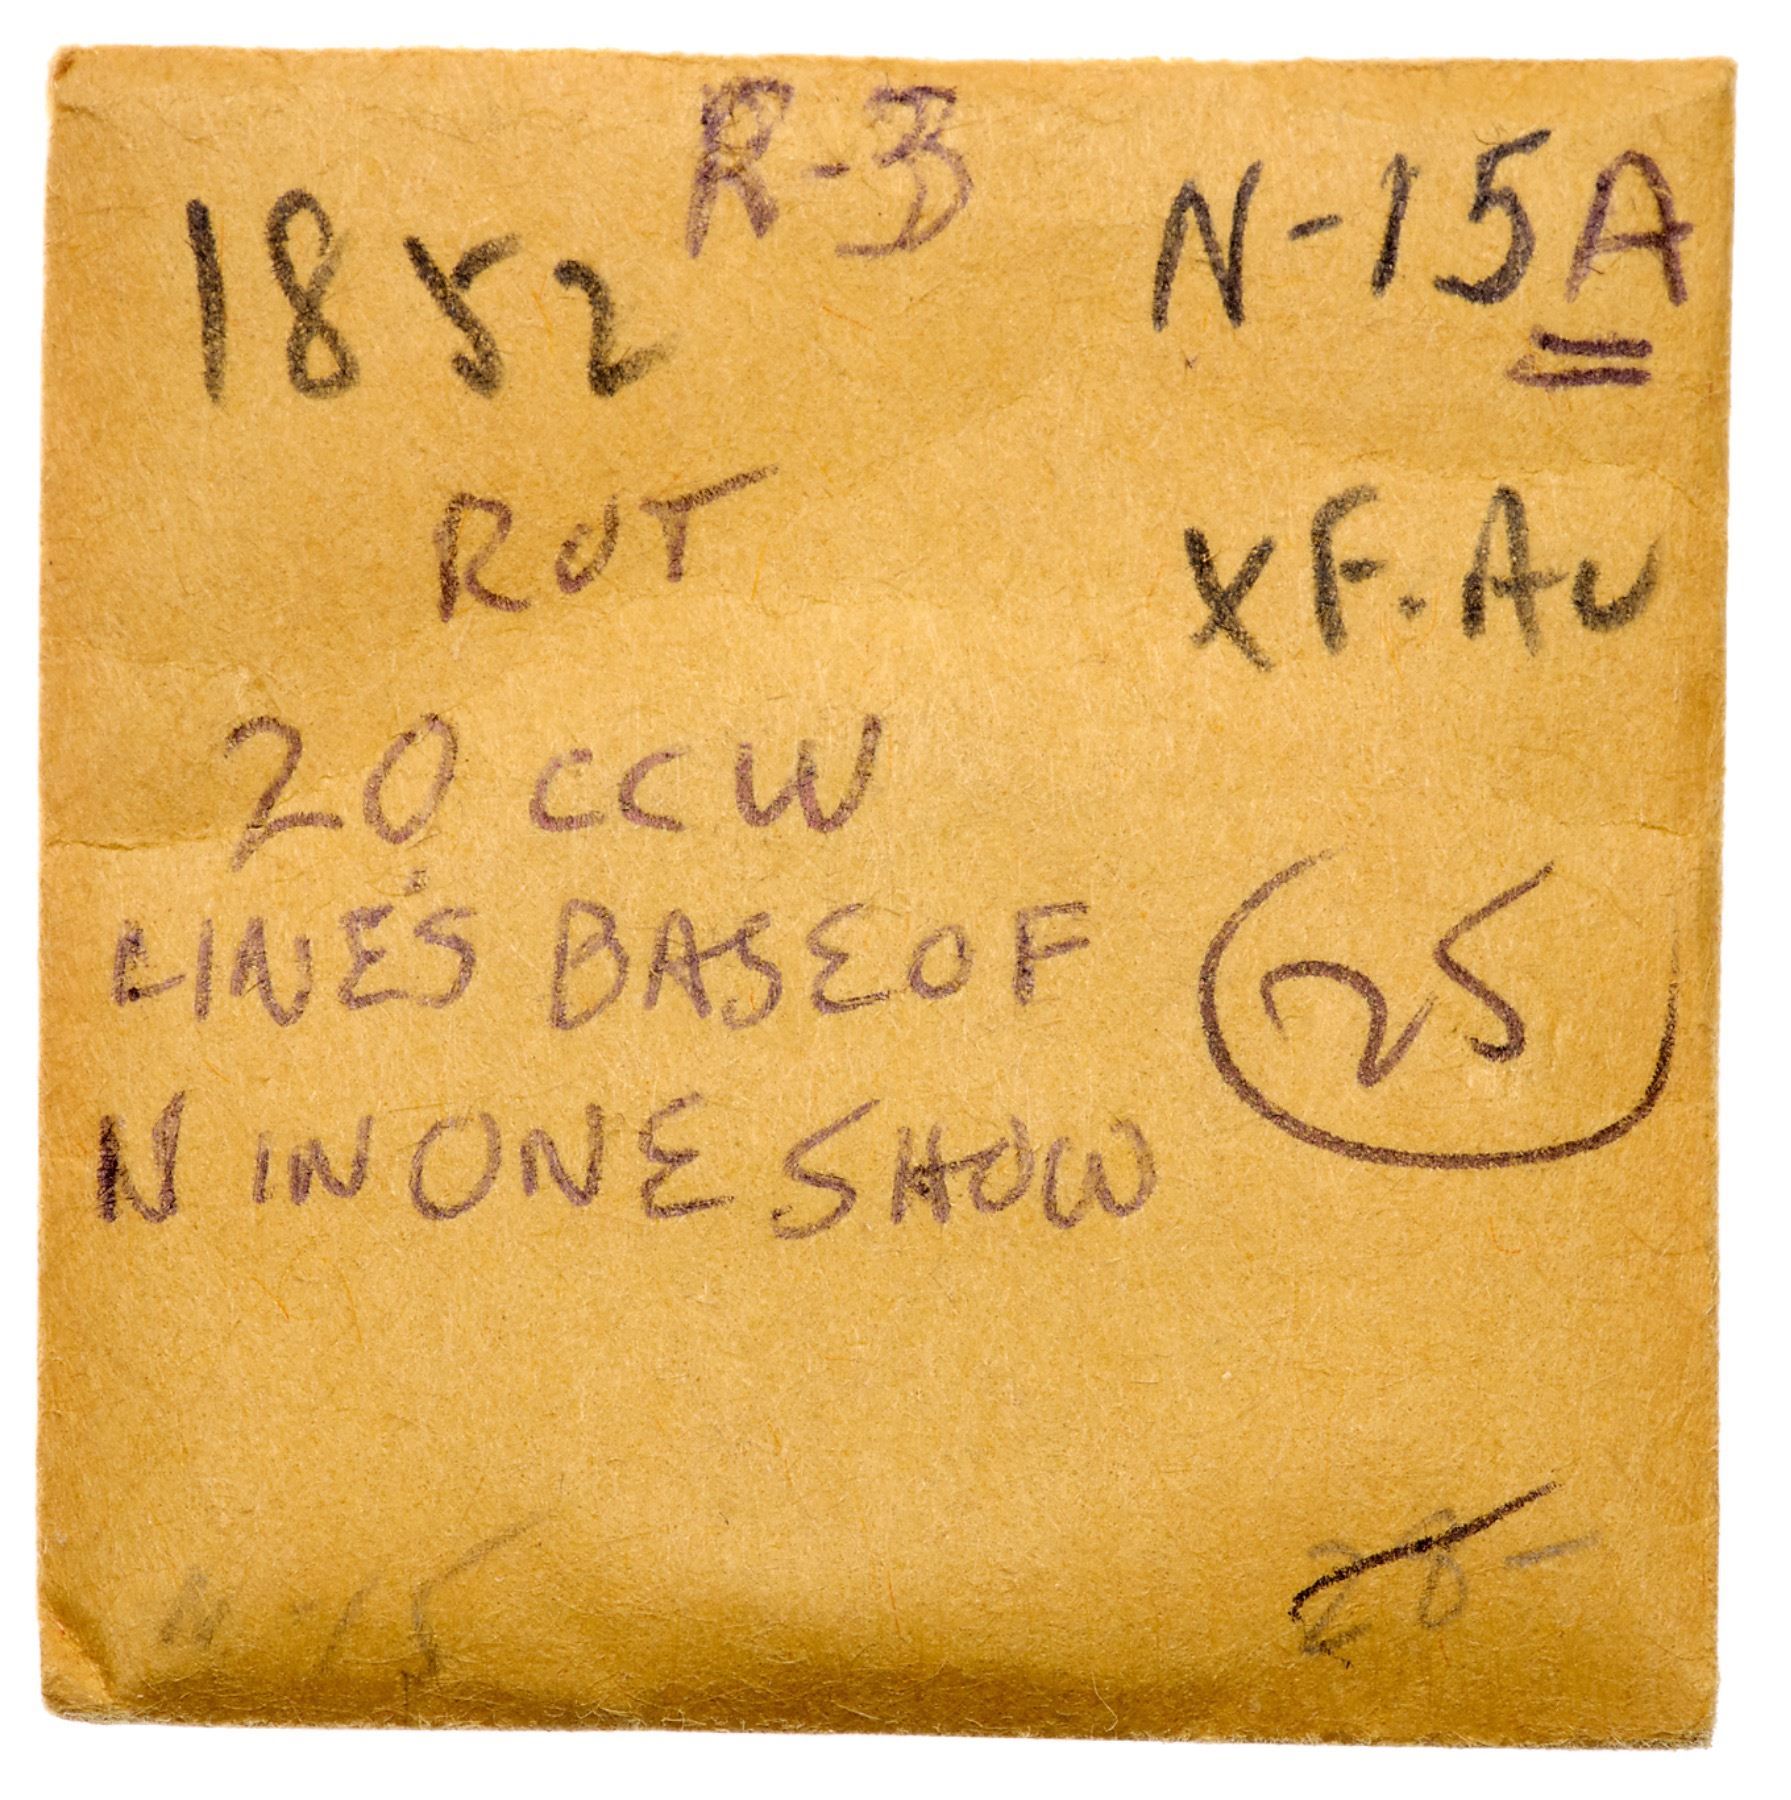 R-3
1852 N-15A
ROT XF.AU
20 CCW
LINES BASE OF
25
N IN ONE SHOW
N-15 28-